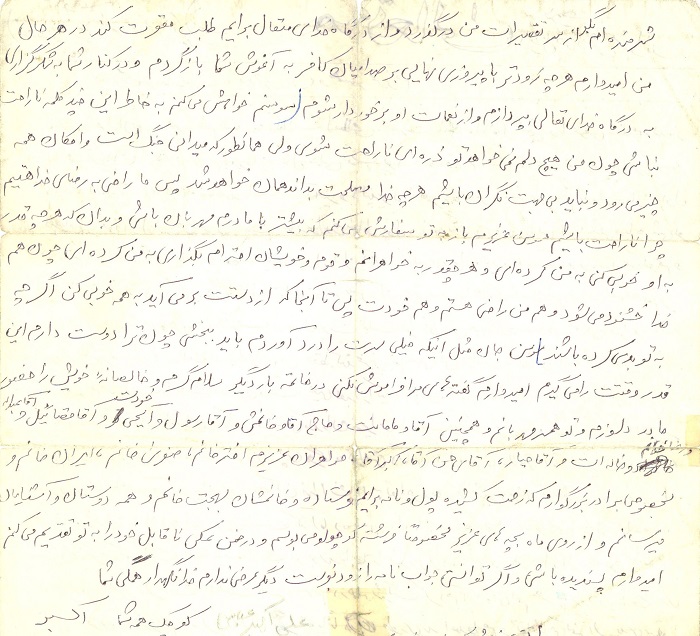 شرمنده ام بگذار سر تقصیرات من درگذرد و از درگاه خدای متعال برایم طلب مغفرت کند در هر حال
من امیدوارم هر چه زودتر با پیروزی نهایی بر صدامیان کافر به آغوش شما بازگردم و در کنار شما به شکرگزاری
به درگاه خدای تعالی بپردازم و از نعمات او برخوردار شوم سوسنم خواهش می کنم به خاطر این چند کلمه ناراحت
نباشی چون من هیچ دلم نمی خواهد تو ذره ای ناراحت شوی ولی همانطور که میدانی جنگ است و امکان همه
چیز می رود و نباید بی جهت نگران باشیم هر چه خدا مصلحت بداند همان خواهد شد پس ما راضی به رضای خدا هستیم
چرا ناراحت باشیم سوسن عزیزم باز هم به تو سفارش می کنم که بیشتر با مادرم مهربان باشی و بدان که هر چه قدر
به او خوبی کنی به من کرده ای و هر چقدر به خواهرانم و قوم و خویشان احترام بگذاری به من کرده ای چون هم
خدا خشنود می شود و هم من راضی هستم و هم خودت پس تا آنجا که از دستت برمی آید به همه خوبی کن اگر چه
به تو بدی کرده باشند سوسن جان مثل اینکه خیلی سرت را درد آوردم باید ببخشی چون ترا دوست دارم این
قدر وقتت را می گیرم امیدوارم گفته های مرا فراموش نکنی در خاتمه بار دیگر سلام گرم و خالصانه خویش را حضور
مادر دلسوزم و تو همسر مهربانم و همچنین آقا و مامانت و حاج آقا و خانمش و آقا رسول و آبجی خودت و آقا فضائل و
و خاله ات و آقا جبار، آقا رحمن آقا، اکبر آقا، خواهران عزیزم اختر خانم، صنوبر خانم، ایران خانم و
بخصوص برادر بزرگوارم که زحمت کشیده پول و نامه برایم فرستاده و خانمشان بهجت خانم و همه دوستان و آشنایان
میرسانم و از روی ماه بچه های عزیز مخصوصا فرشته کوچولو می بوسم و در ضمن عکس ناقابل خود را به تو تقدیم می کنم
امیدوارم پسندیده باشی و اگر توانستی جواب نامه را زود بنویس دیگر عرضی ندارم خدا نگهدار همگی شما
کوچک همه شما اکبر